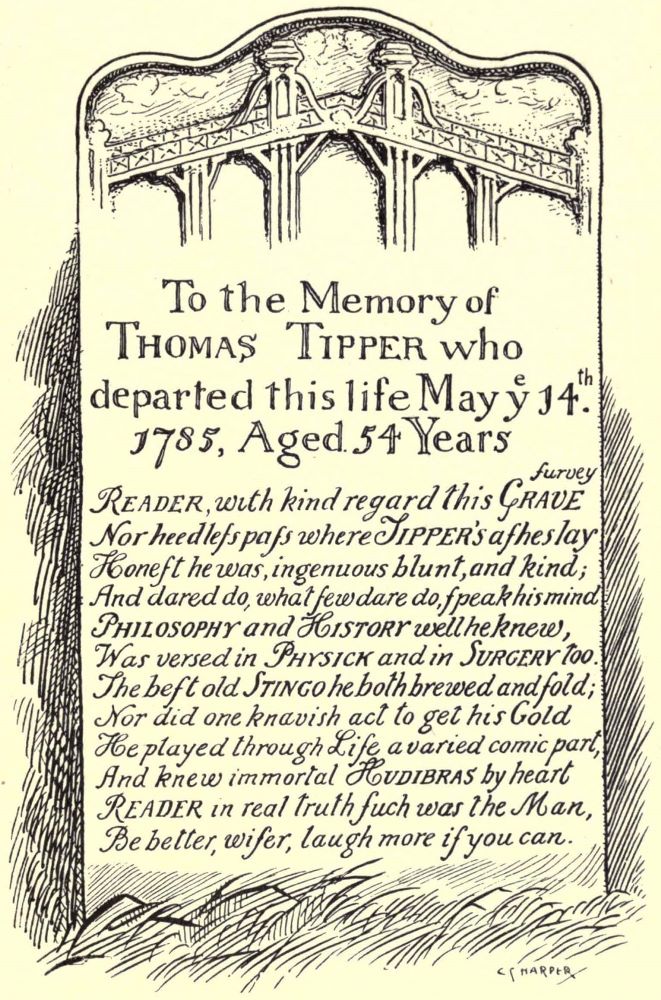 To the Memory of
THOMAS TIPPER who
departed this life May yᵉ 14.ᵗʰ
1785, Aged 54 Years
READER, with kind regard this GRAVE ſurvey
Nor heedleſs paſs where TIPPER'S aſhes lay
Honeſt he was, ingenuous blunt, and kind;
And dared do, what few dare do, ſpeak his mind
PHILOSOPHY and HISTORY well he knew,
Was versed in PHYSICK and in SURGERY too.
The beſt old STINGO he both brewed and ſold;
Nor did one knavish act to get his Gold
He played through Life a varied comic part,
And knew immortal HUDIBRAS by heart
READER in real truth ſuch was the Man,
Be better, wiſer, laugh more if you can.
C G HARPER